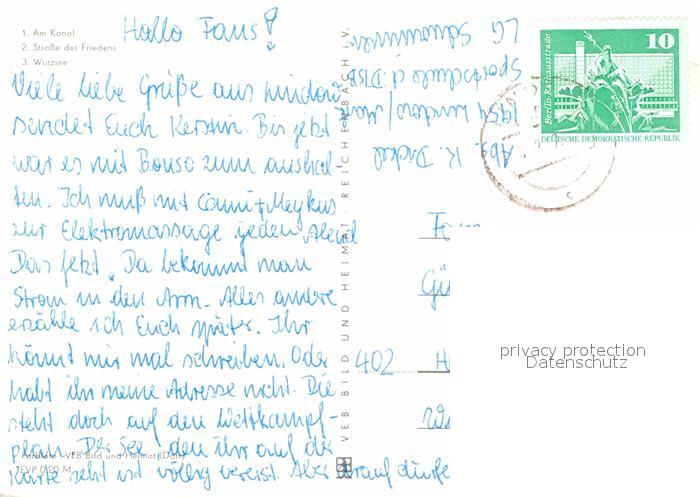 Hallo Fans!
1. Am Kanal
2. Straße des Friedens
3. Wutzsee
Viele liebe Grüße aus Lindow
sendet Euch Kerstin. Bis jetzt
war es mit Bonso zum aushal-
ten. Ich muß mit Conni + Meykus
zur Elektromassage jeden Abend
Das fetzt. Da bekommt man
Strom in den Arm. Alles andere
erzähle ich Euch später. Ihr
könnt mir mal schreiben. Oder
habt ihr meine Adresse nicht. Die
steht doch auf den Wettkampf-
plan. Der See, den ihr auf der
Karte seht ist völlig vereist. Aber darauf dürfe
VEB Bild und Heimat (Dah)
EVP 0,20 M
VEB BILD UND HEIMAT REICHENBACH I.V.
Abs. K. Dickel
1954 Lindow/Mark
Sportschule d. DTSB
LG Schwimmen
Berlin-Rathausstraße
10
DEUTSCHE DEMOKRATISCHE REPUBLIK
Gü
402 H
privacy protection
Datenschutz